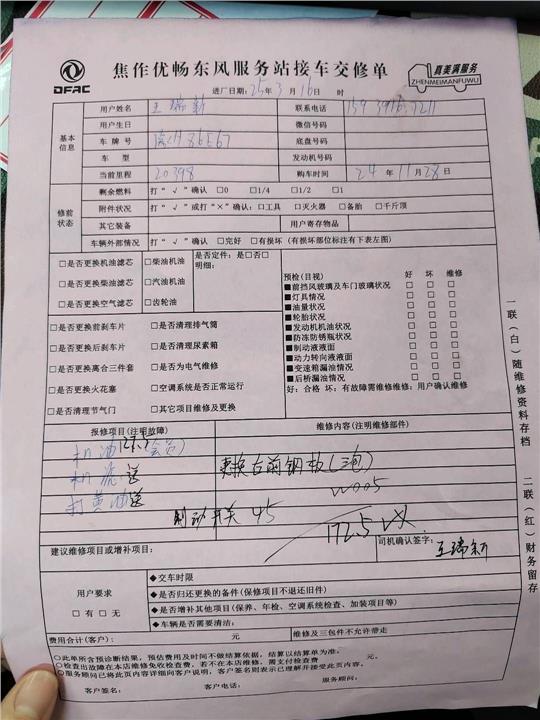 DFAC
焦作优畅东风服务站接车交修单
真美满服务
ZHENMEIMANFUWU
进厂日期:25年3月16日 时
基本信息
用户姓名 王瑞新 联系电话
用户生日 微信号码
车牌号 底盘号码
车型 发动机号码
当前里程 20398 购车时间 24年11月28日
修前状态
剩余燃料 打“√”确认 □0 □1/4 □1/2 □1
附件状况 打“√”或打“×”确认:□工具 □灭火器 □备胎 □千斤顶
其它装备 用户寄存物品
车辆外部情况 打“√”确认 □完好 □有损坏(有损坏部位标注有下表左图)
□是否更换机油滤芯 □柴油机油 是否定件:是□否□
明细:
□是否更换柴油滤芯 □汽油机油
□是否更换空气滤芯 □齿轮油
预检(目视) 好 坏 维修
■前挡风玻璃及车门玻璃状况 □ □ □
■灯具情况 □ □ □
■油量状况 □ □ □
■轮胎状况 □ □ □
■发动机机油状况 □ □ □
■防冻防锈瓶状况 □ □ □
■制动液液面 □ □ □
■动力转向液液面 □ □ □
■变速箱漏油情况 □ □ □
■后桥漏油情况 □ □ □
好:合格 坏:有故障需维修维修:用户确认维修
□是否更换前刹车片 □是否清理排气筒
□是否更换后刹车片 □是否清理尿素箱
□是否更换离合三件套 □是否为电气维修
□是否更换火花塞 □空调系统是否正常运行
□是否清理节气门 □其它项目维修及更换
报修项目(注明故障) 维修内容(注明维修部件)
机油127.5
机滤送 更换右前钢板(三包)
打黄油送 W005
制动开关 45
172.5
建议维修项目或增补项目: 司机确认签字: 王瑞新
用户要求
□有 □无
◆交车时限
◆是否归还更换的备件(保修项目不退还旧件)
◆是否增补其他项目(保养、年检、空调系统检查、加装项目等)
◆车辆是否需要清洁:
费用合计(客户): 元 维修及三包件不允许带走
○此单所含预诊断结果,预估费用及时间不做结算依据,结算以结算单为准。
○检查出故障在本店维修免收检查费,若不在本店维修,需支付检查费 元。
○服务顾问已将此页内容详细向客户说明,客户签名则表示已理解并接受此页内容。
客户签名: 客户电话: 服务顾问:
一联(白)随维修资料存档
二联(红)财务留存